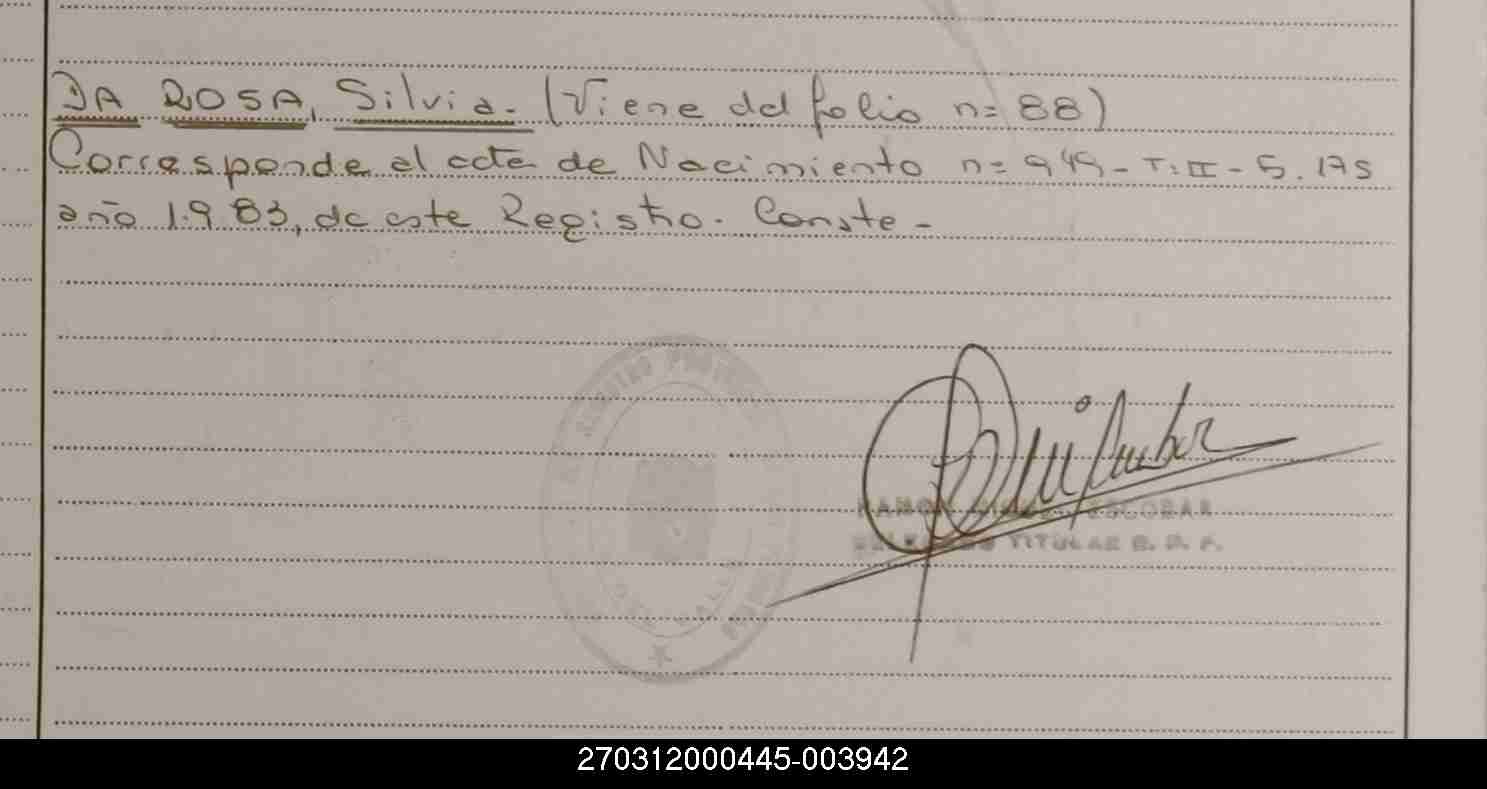 DA ROSA, Silvia.- (Viene del folio n= 88)
Corresponde al acta de Nacimiento n= 949 - T: II - S. 175
año 1.983, de este Registro. Conste -
RAMON MIGUEL ESCOBAR
DELEGADO TITULAR R. P. P.
270312000445-003942